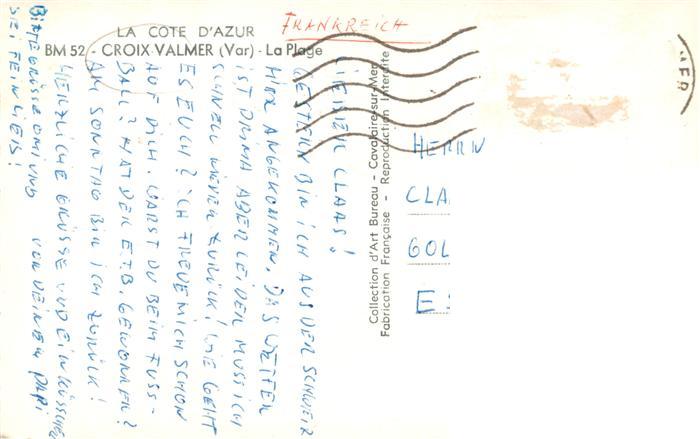 FRANKREICH
LA COTE D'AZUR
BM 52 - CROIX VALMER (Var) - La Plage
LIEBER CLAAS!
GESTERN BIN ICH AUS DER SCHWEIZ
HIER ANGEKOMMEN. DAS WETTER
IST PRIMA ABER LEIDER MUSS ICH
SCHNELL WIEDER ZURÜCK! WIE GEHT
ES EUCH? ICH FREUE MICH SCHON
AUF DICH. WARST DU BEIM FUSS-
BALL? HAT DER E.T.B. GEWONNEN?
AM SONNTAG BIN ICH ZURÜCK!
HERZLICHE GRÜSSE UND EIN KÜSSCHEN
VON DEINEM PAPI
BITTE GRÜSSE OMI UND
SEI FEIN LIEB!
Collection d'Art Bureau - Cavalaire-sur-Mer
Fabrication Française - Reproduction Interdite
HERRN
CLA
GOL
E